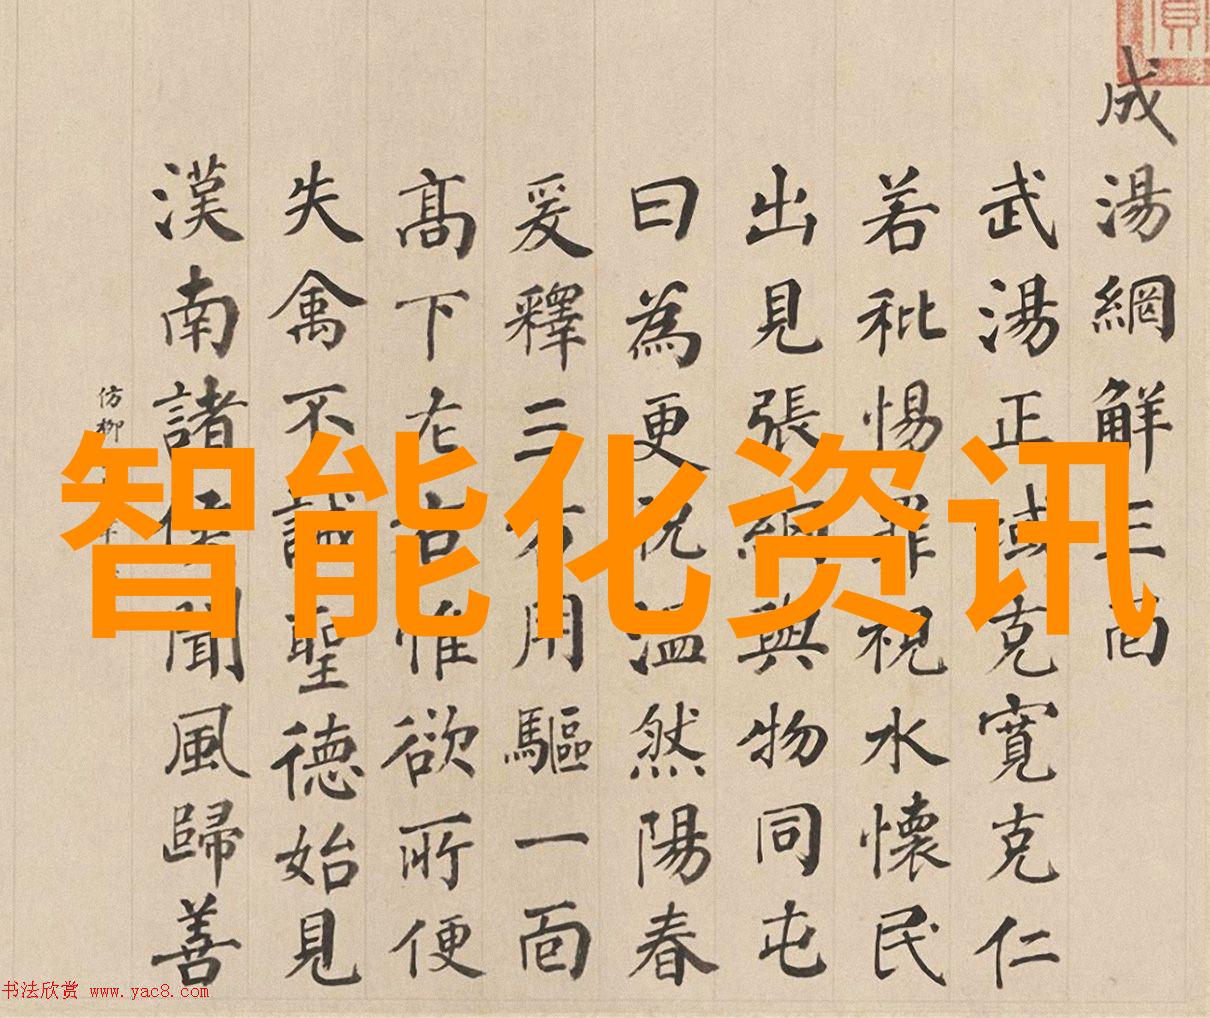 成湯網觧三面
武湯正域克寬克仁
若秕惕罪視水懷民
出見張網與物同屯
曰為更祝溫然陽春
爰釋三方用驅一面
髙下左右惟欲所便
失禽不誡聖德始見
漢南諸侯聞風歸善
仿柳
智能化资讯
书法欣赏 www.yac8.com